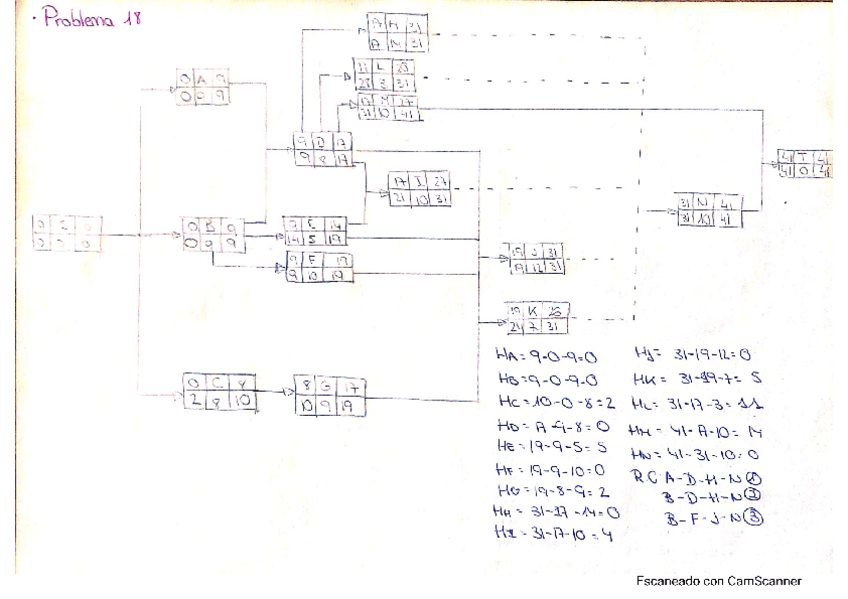 · Problema 18
A H 31
A 14 31
17 L 25
28 3 31
17 M 27
31 10 41
0 A 9
0 9 9
9 D 17
9 8 17
41 T 41
41 0 41
17 I 27
21 10 31
31 N 41
31 10 41
0 B 9
0 9 9
9 E 14
14 5 19
9 F 19
9 10 19
19 J 31
19 12 31
19 K 26
24 7 31
0 C 8
2 8 10
8 G 17
10 9 19
HA = 9-0-9=0
HB = 9-0-9=0
HC = 10-0-8=2
HD = A-9-8=0
HE = 19-9-5=5
HF = 19-9-10=0
HG = 19-8-9=2
HH = 31-17-14=0
HI = 31-17-10=4
HJ = 31-19-12=0
HK = 31-19-7=5
HL = 31-17-3=11
HM = 41-A-10=14
HN = 41-31-10=0
RC A-D-H-N ①
B-D-H-N ②
B-F-J-N ③
Escaneado con CamScanner